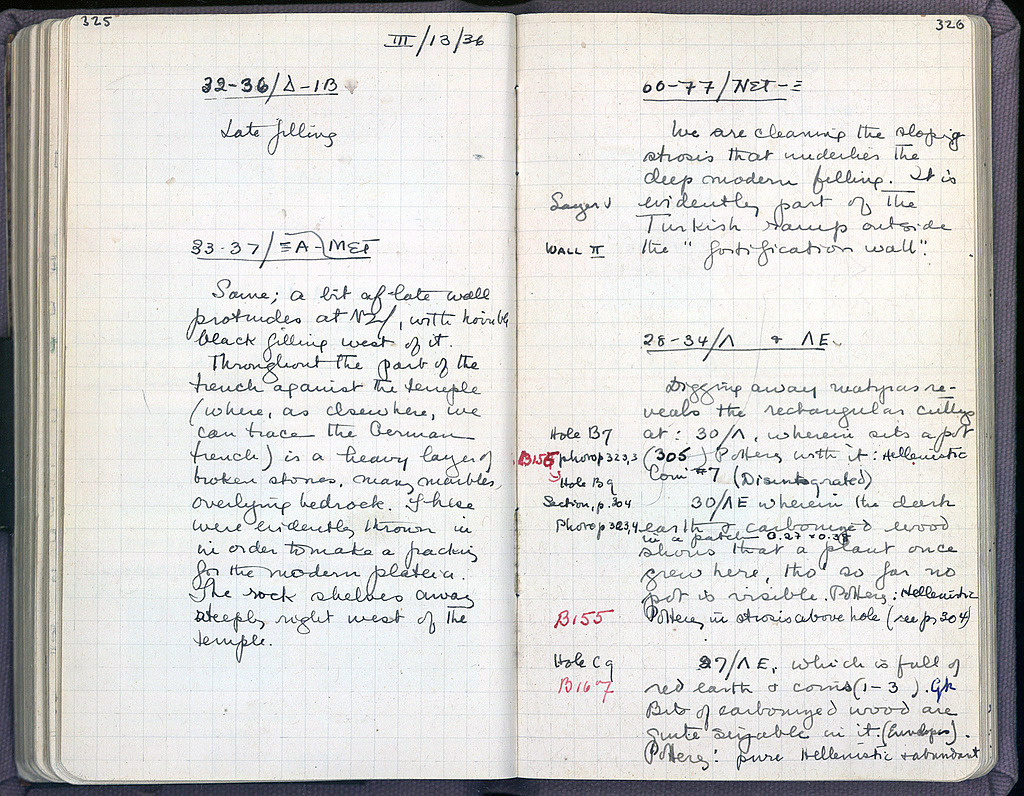 325
III/13/36
32-36/Δ-ΙΒ
Late filling
33-37/ΞΑ-ΜΕΤ
Same; a bit of late wall
protrudes at ΝΖ/, with horrible
black filling west of it.
Throughout the part of the
trench against the temple
(where, as elsewhere, we
can trace the German
trench) is a heavy layer of
broken stones, many marbles,
overlying bedrock. These
were evidently thrown in
in order to make a packing
for the modern plateia.
The rock shelves away
steeply right west of the
temple.
326
60-77/ΝΕΤ-Ξ
We are cleaning the sloping
strosis that underlies the
deep modern filling. It is
Layer V evidently part of the
Turkish ramp outside
WALL II the "fortification wall".
28-34/Λ & ΛΕ
Digging away matyras re-
veals the rectangular cuttings
Hole B7 at: 30/Λ, wherein sits a pot
B155 photo p 323,3 (305) Pottery with it: Hellenistic
Hole B9 Coin #7 (Disintegrated)
Section, p. 304 30/ΛΕ wherein the dark
Photo p 323,4 earth & carbonized wood
in a patch 0.27 × 0.38
shows that a plant once
grew here, tho' so far no
pot is visible. Pottery: Hellenistic
B155 Pottery in strosis above hole (see p 304)
Hole C9 27/ΛΕ, which is full of
B167 red earth & coins (1-3). Gk
Bits of carbonized wood are
quite sizable in it. (Envelopes).
Pottery: pure Hellenistic & abundant